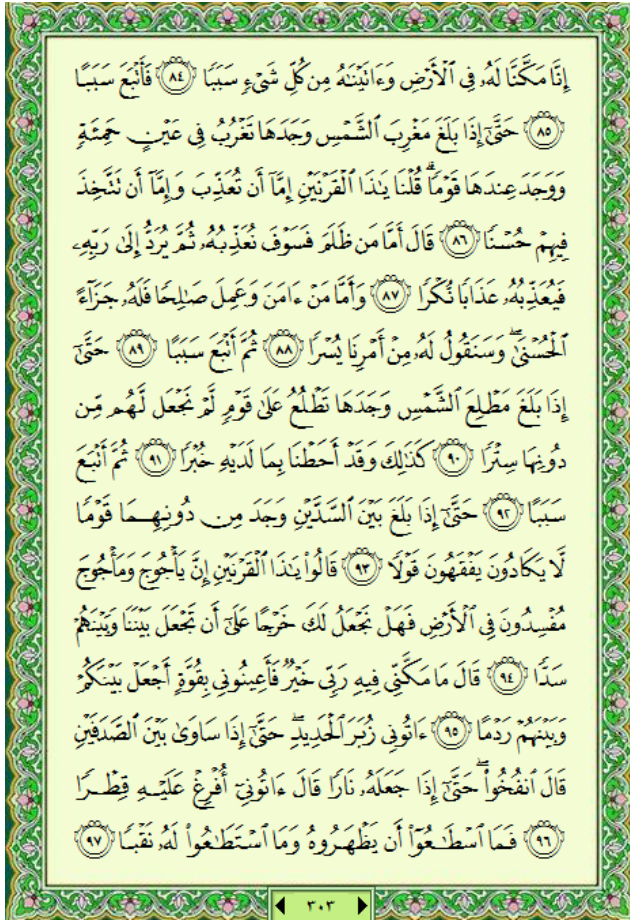 إِنَّا مَكَّنَّا لَهُۥ فِى ٱلْأَرْضِ وَءَاتَيْنَٰهُ مِن كُلِّ شَىْءٍ سَبَبًا ﴿٨٤﴾ فَأَتْبَعَ سَبَبًا
﴿٨٥﴾ حَتَّىٰٓ إِذَا بَلَغَ مَغْرِبَ ٱلشَّمْسِ وَجَدَهَا تَغْرُبُ فِى عَيْنٍ حَمِئَةٍ
وَوَجَدَ عِندَهَا قَوْمًاۗ قُلْنَا يَٰذَا ٱلْقَرْنَيْنِ إِمَّآ أَن تُعَذِّبَ وَإِمَّآ أَن تَتَّخِذَ
فِيهِمْ حُسْنًا ﴿٨٦﴾ قَالَ أَمَّا مَن ظَلَمَ فَسَوْفَ نُعَذِّبُهُۥ ثُمَّ يُرَدُّ إِلَىٰ رَبِّهِۦ
فَيُعَذِّبُهُۥ عَذَابًا نُّكْرًا ﴿٨٧﴾ وَأَمَّا مَنْ ءَامَنَ وَعَمِلَ صَٰلِحًا فَلَهُۥ جَزَآءً
ٱلْحُسْنَىٰۖ وَسَنَقُولُ لَهُۥ مِنْ أَمْرِنَا يُسْرًا ﴿٨٨﴾ ثُمَّ أَتْبَعَ سَبَبًا ﴿٨٩﴾ حَتَّىٰٓ
إِذَا بَلَغَ مَطْلِعَ ٱلشَّمْسِ وَجَدَهَا تَطْلُعُ عَلَىٰ قَوْمٍ لَّمْ نَجْعَل لَّهُم مِّن
دُونِهَا سِتْرًا ﴿٩٠﴾ كَذَٰلِكَ وَقَدْ أَحَطْنَا بِمَا لَدَيْهِ خُبْرًا ﴿٩١﴾ ثُمَّ أَتْبَعَ
سَبَبًا ﴿٩٢﴾ حَتَّىٰٓ إِذَا بَلَغَ بَيْنَ ٱلسَّدَّيْنِ وَجَدَ مِن دُونِهِمَا قَوْمًا
لَّا يَكَادُونَ يَفْقَهُونَ قَوْلًا ﴿٩٣﴾ قَالُوا۟ يَٰذَا ٱلْقَرْنَيْنِ إِنَّ يَأْجُوجَ وَمَأْجُوجَ
مُفْسِدُونَ فِى ٱلْأَرْضِ فَهَلْ نَجْعَلُ لَكَ خَرْجًا عَلَىٰٓ أَن تَجْعَلَ بَيْنَنَا وَبَيْنَهُمْ
سَدًّا ﴿٩٤﴾ قَالَ مَا مَكَّنِّى فِيهِ رَبِّى خَيْرٌ فَأَعِينُونِى بِقُوَّةٍ أَجْعَلْ بَيْنَكُمْ
وَبَيْنَهُمْ رَدْمًا ﴿٩٥﴾ ءَاتُونِى زُبَرَ ٱلْحَدِيدِۖ حَتَّىٰٓ إِذَا سَاوَىٰ بَيْنَ ٱلصَّدَفَيْنِ
قَالَ ٱنفُخُوا۟ۖ حَتَّىٰٓ إِذَا جَعَلَهُۥ نَارًا قَالَ ءَاتُونِىٓ أُفْرِغْ عَلَيْهِ قِطْرًا
﴿٩٦﴾ فَمَا ٱسْطَٰعُوٓا۟ أَن يَظْهَرُوهُ وَمَا ٱسْتَطَٰعُوا۟ لَهُۥ نَقْبًا ﴿٩٧﴾
٣٠٣